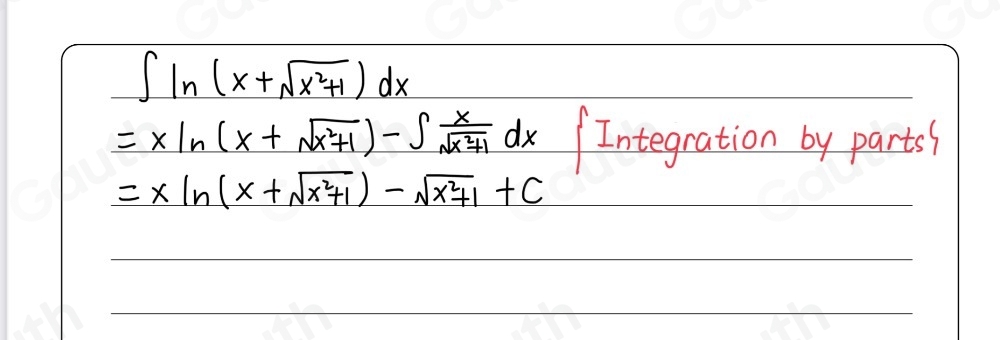 ∫ ln (x+√(x²+1)) dx
= x ln (x + √(x²+1)) - ∫ x/√(x²+1) dx {Integration by parts}
= x ln (x + √(x²+1)) - √(x²+1) + C